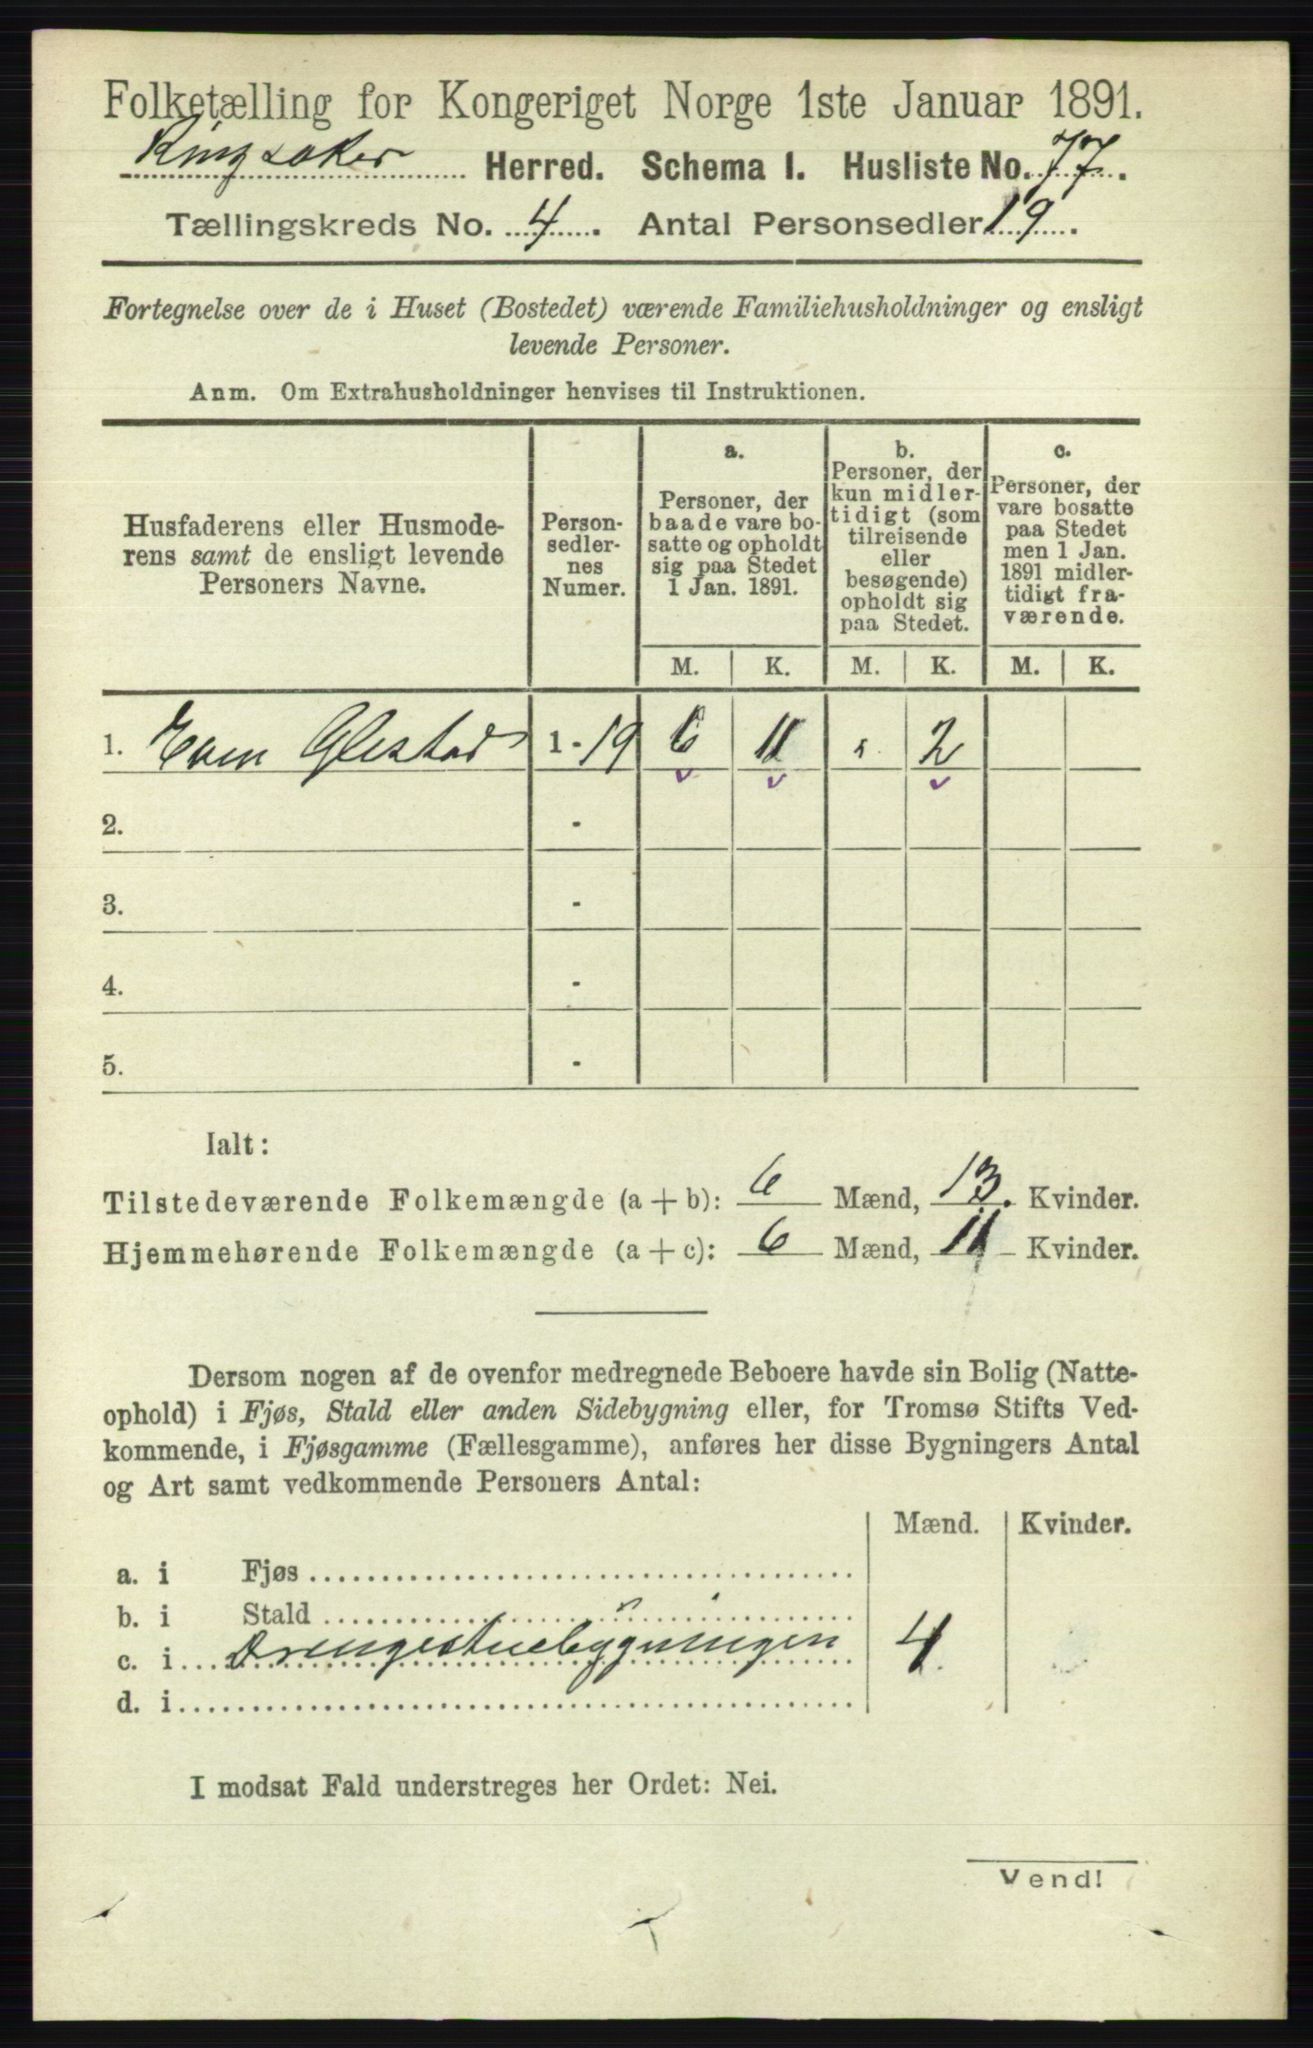 Folketælling for Kongeriget Norge 1ste Januar 1891.
Ringsaker Herred. Schema I. Husliste No. 77.
Tællingskreds No. 4. Antal Personsedler 19.
Fortegnelse over de i Huset (Bostedet) værende Familiehusholdninger og ensligt
levende Personer.
Anm. Om Extrahusholdninger henvises til Instruktionen.
Husfaderens eller Husmode-
rens samt de ensligt levende
Personers Navne.
Person-
sedler-
nes
Numer.
a.
Personer, der
baade vare bo-
satte og opholdt
sig paa Stedet
1 Jan. 1891.
b.
Personer, der
kun midler-
tidigt (som
tilreisende
eller
besøgende)
opholdt sig
paa Stedet.
c.
Personer, der
vare bosatte
paa Stedet
men 1 Jan.
1891 midler-
tidigt fra-
værende.
M. K. M. K. M. K.
1. Even Glestad 1 - 19 6 11 2
2. -
3. -
4. -
5. -
Ialt:
Tilstedeværende Folkemængde (a + b): 6 Mænd, 13. Kvinder.
Hjemmehørende Folkemængde (a + c): 6 Mænd, 11 Kvinder.
Dersom nogen af de ovenfor medregnede Beboere havde sin Bolig (Natte-
ophold) i Fjøs, Stald eller anden Sidebygning eller, for Tromsø Stifts Ved-
kommende, i Fjøsgamme (Fællesgamme), anføres her disse Bygningers Antal
og Art samt vedkommende Personers Antal:
Mænd. Kvinder.
a. i Fjøs
b. i Stald
c. i Drengestuebygningen 4
d. i
I modsat Fald understreges her Ordet: Nei.
Vend!